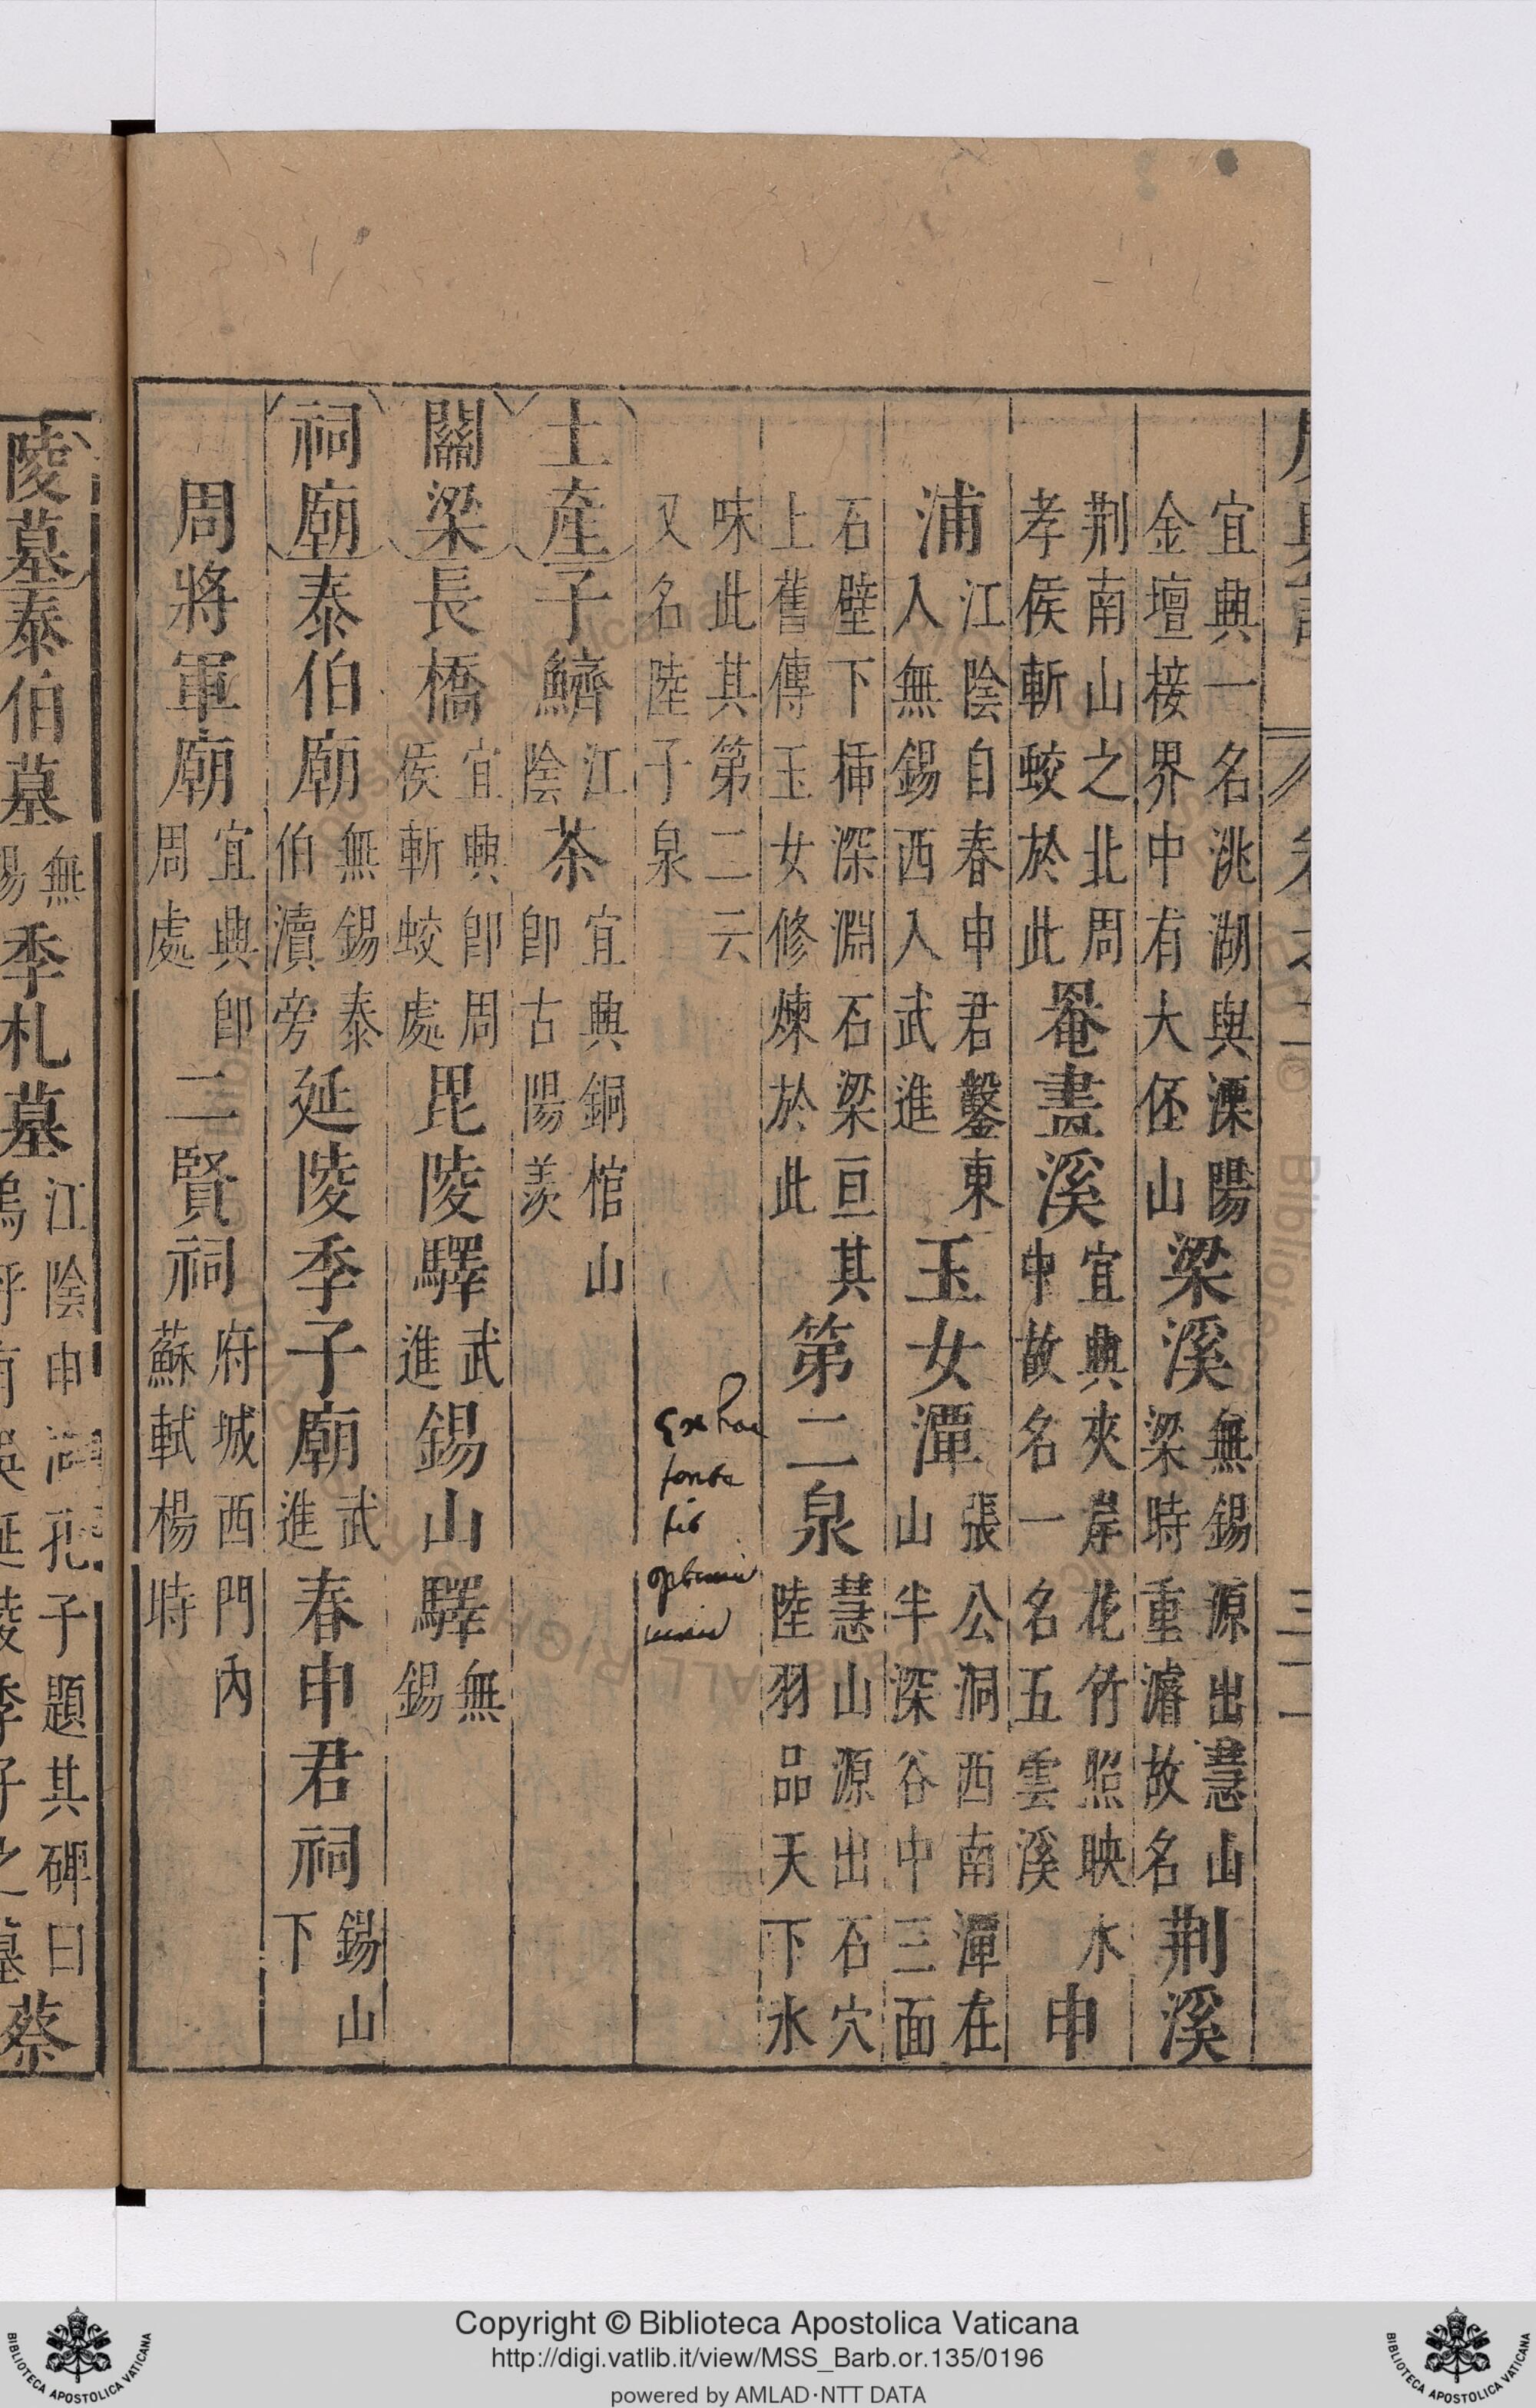 宜興一名洮湖與溧陽
金壇接界中有大伾山
梁溪
無錫源出慧山
梁時重濬故名
荆溪
荆南山之北周
孝侯斬蛟於此
罨畫溪
宜興夾岸花竹照映水
中故名一名五雲溪
申
浦
江陰自春申君鑿東
入無錫西入武進
玉女潭
張公洞西南潭在
山半深谷中三面
石壁下揷深淵石梁亘其
上舊傳玉女修煉於此
第二泉
慧山源出石穴
陸羽品天下水
味此其第二云
又名陸子泉
土產
子鱭
江
陰
茶
宜興銅棺山
卽古陽羨
關梁
長橋
宜興卽周
侯斬蛟處
毘陵驛
武
進
錫山驛
無
錫
祠廟
泰伯廟
無錫泰
伯瀆旁
延陵季子廟
武
進
春申君祠
錫山
下
周將軍廟
宜興卽
周處
二賢祠
府城西門內
蘇軾楊時
陵墓
泰伯墓
無
錫
季札墓
江陰申浦孔子題其碑曰
嗚呼有吳延陵季子之墓
蔡
Ex hac
fonte
fit
optimū
vinū
Copyright © Biblioteca Apostolica Vaticana
http://digi.vatlib.it/view/MSS_Barb.or.135/0196
powered by AMLAD·NTT DATA
BIBLIOTECA APOSTOLICA VATICANA
BIBLIOTECA APOSTOLICA VATICANA